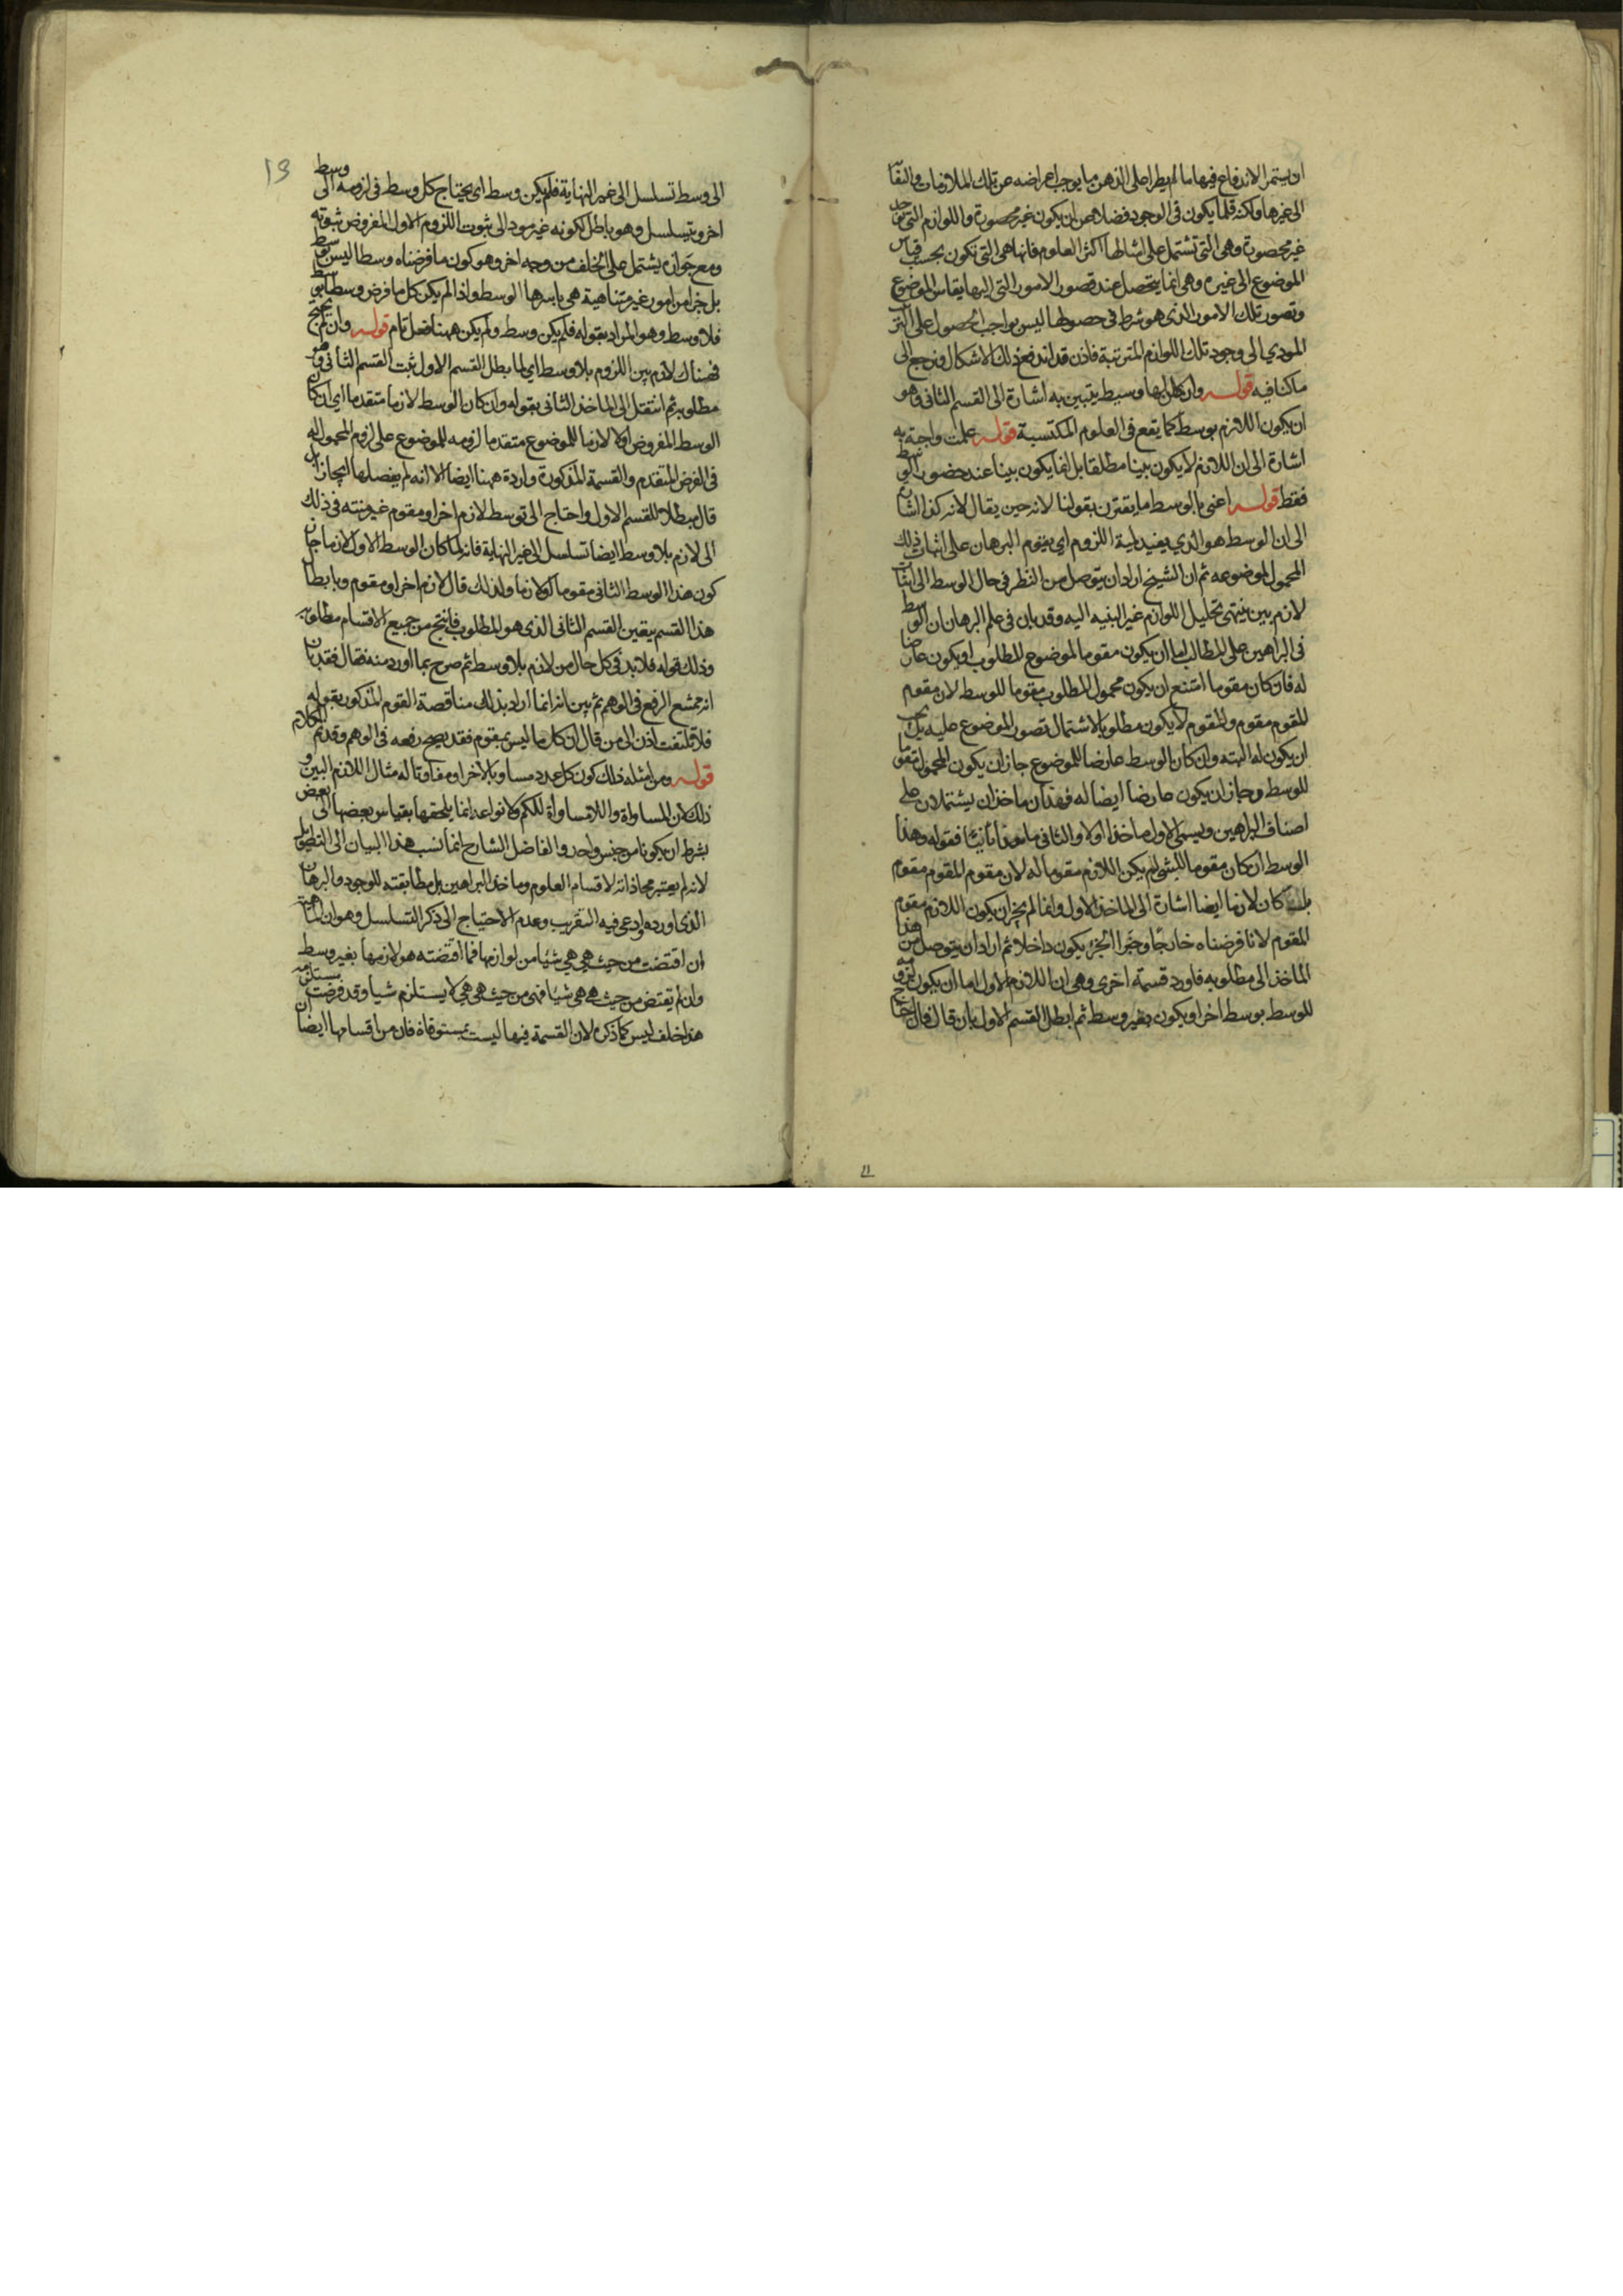 ان يستمر الاندفاع فيها ما لم يطرا على الذهن ما يوجب اعراضه عن تلك الملازمات والتفا
الى غيرها ولكنه قلما يكون فى الوجود فضلا عن ان يكون غير محصورة واللوازم التى توجد
غير محصورة وهى التى تشتمل على امثالها اكثر العلوم فانها هى التى تكون بحسب قياس
الموضوع الى غيره وهى انما يتحصل عند تصور الامور التى اليها يقاس الموضوع
وتصور تلك الامور الذى هو شرط فى حصولها ليس بواجب الحصول على الترتيب
المودي الى وجود تلك اللوازم المترتبة فاذن قد اندفع ذلك الاشكال ونرجع الى
ما كنا فيه قوله وان كان لها وسيط يتبين به اشارة الى القسم الثانى وهو
ان يكون اللازم بوسط كما يقع فى العلوم المكتسبة قوله علمت واجبة به
اشارة الى ان اللازم لا يكون بينا مطلقا بل انما يكون بينا عند حضور الوسط
فقط قوله اعنى بالوسط ما يقترن بقولنا لانه حين يقال لانه كذا اشارة
الى ان الوسط هو الذي يفيد لمية اللزوم اي يقوم البرهان على اثبات ذلك
المحمول لموضوعه ثم ان الشيخ اراد ان يتوصل من النظر فى حال الوسط الى اثبات
لازم بين ينتهى تحليل اللوازم غير البينه اليه وقد بان فى علم البرهان ان الوسط
فى البراهين على المطالب اما ان يكون مقوما لموضوع المطلوب او يكون عارضا
له فان كان مقوما امتنع ان يكون محمول المطلوب مقوما للوسط لان مقوم
المقوم مقوم والمقوم لا يكون مطلوبا لاشتمال تصور الموضوع عليه بل يجب
ان يكون له البته وان كان الوسط عارضا للموضوع جاز ان يكون المحمول مقوما
للوسط وجاز ان يكون عارضا ايضا له فهذان ماخذان يشتملان على
اصناف البراهين ويسمى الاول ماخذا اولا والثانى ماخذا ثانيا فقوله وهذا
الوسط ان كان مقوما للشى لم يكن اللازم مقوما له لان مقوم المقوم مقوم
بل كان لازما ايضا اشارة الى الماخذ الاول وانما لم يجز ان يكون اللازم مقوم
المقوم لانا فرضناه خارجا وجزا الجزء يكون داخلا ثم اراد ان يتوصل من هذا
الماخذ الى مطلوبه فاورد قسمة اخرى وهى ان اللازم الاول اما ان يكون لزومه
للوسط بوسط اخر او يكون بغير وسط ثم ابطل القسم الاول بان قال فان احتاج
13
الى وسط تسلسل الى غير النهاية فلم يكن وسط اى يحتاج كل وسط فى لزومه الى وسط
اخر ويتسلسل وهو باطل لكونه غير مود الى ثبوت اللزوم الاول المفروض ثبوته
ومع جوازه يشتمل على الخلف من وجه اخر وهو كون ما فرضناه وسطا ليس بوسط
بل جزا من امور غير متناهية هى باسرها الوسط واذا لم يكن كل ما فرض وسطا بوسط
فلا وسط وهو المراد بقوله فلم يكن وسط ولم يكن ههنا فعل تام قوله وان لم يحتج
فهناك لازم بين اللزوم بلا وسط اي لما بطل القسم الاول ثبت القسم الثانى وهو
مطلوبه ثم انتقل الى الماخذ الثانى بقوله وان كان الوسط لازما متقدما اي ان كان
الوسط المفروض اولا لازما للموضوع متقدما لزومه للموضوع على لزوم المحمول له
فى الفرض المتقدم والقسمة المذكورة واردة ههنا ايضا الا انه لم يفصلها ايجازا بل
قال مبطلا للقسم الاول واحتاج الى توسط لازم اخر او مقوم غير منته فى ذلك
الى لازم بلا وسط ايضا تسلسل الى غير النهاية فانه لما كان الوسط الاول لازما جاز ان
كون هذا الوسط الثانى مقوما كولا لازما ولذلك قال لازم اخر او مقوم وبابطال
هذا القسم يتعين القسم الثانى الذى هو المطلوب فانتج من جميع الاقسام مطلوبه
وذلك قوله فلا بد فى كل حال من لازم بلا وسط ثم صرح بما اورد منه فقال فقد بان
انه ممتنع الرفع فى الوهم ثم بين انه انما اراد بذلك مناقصة القوم المذكور بقوله
فلا تلتفت اذن الى من قال ان كل ما ليس بمقوم فقد يصح رفعه فى الوهم وقد تم الكلام
قوله ومن امثله ذلك كون كل عدد مساويا للاخر او مفاوتا له مثال اللازم البين و
ذلك لان المساواة واللامساواة للكم ولانواعه انما يلحقها بقياس بعضها الى بعض
بشرط ان يكونا من جنس واحد والفاضل الشارح انما نسب هذا البيان الى التطويل
لانه لم يعتبر محاذاته لاقسام العلوم وماخذ البراهين بل مطابقته للوجود والبرهان
الذى اورده وادعى فيه التقريب وعدم الاحتياج الى ذكر التسلسل وهو ان الماهية
ان اقتضت من حيث هى هى شيا من لوازمها فما اقتضته هو لازمها بغير وسط
وان لم يقتض من حيث هى هى شيا فهى من حيث هى هى لا يستلزم شيا وقد فرضت مستلزمه
هذا خلف ليس كما ذكره لان القسمة فيها ليست بمستوفاة فان من اقسامها ايضا ان
11